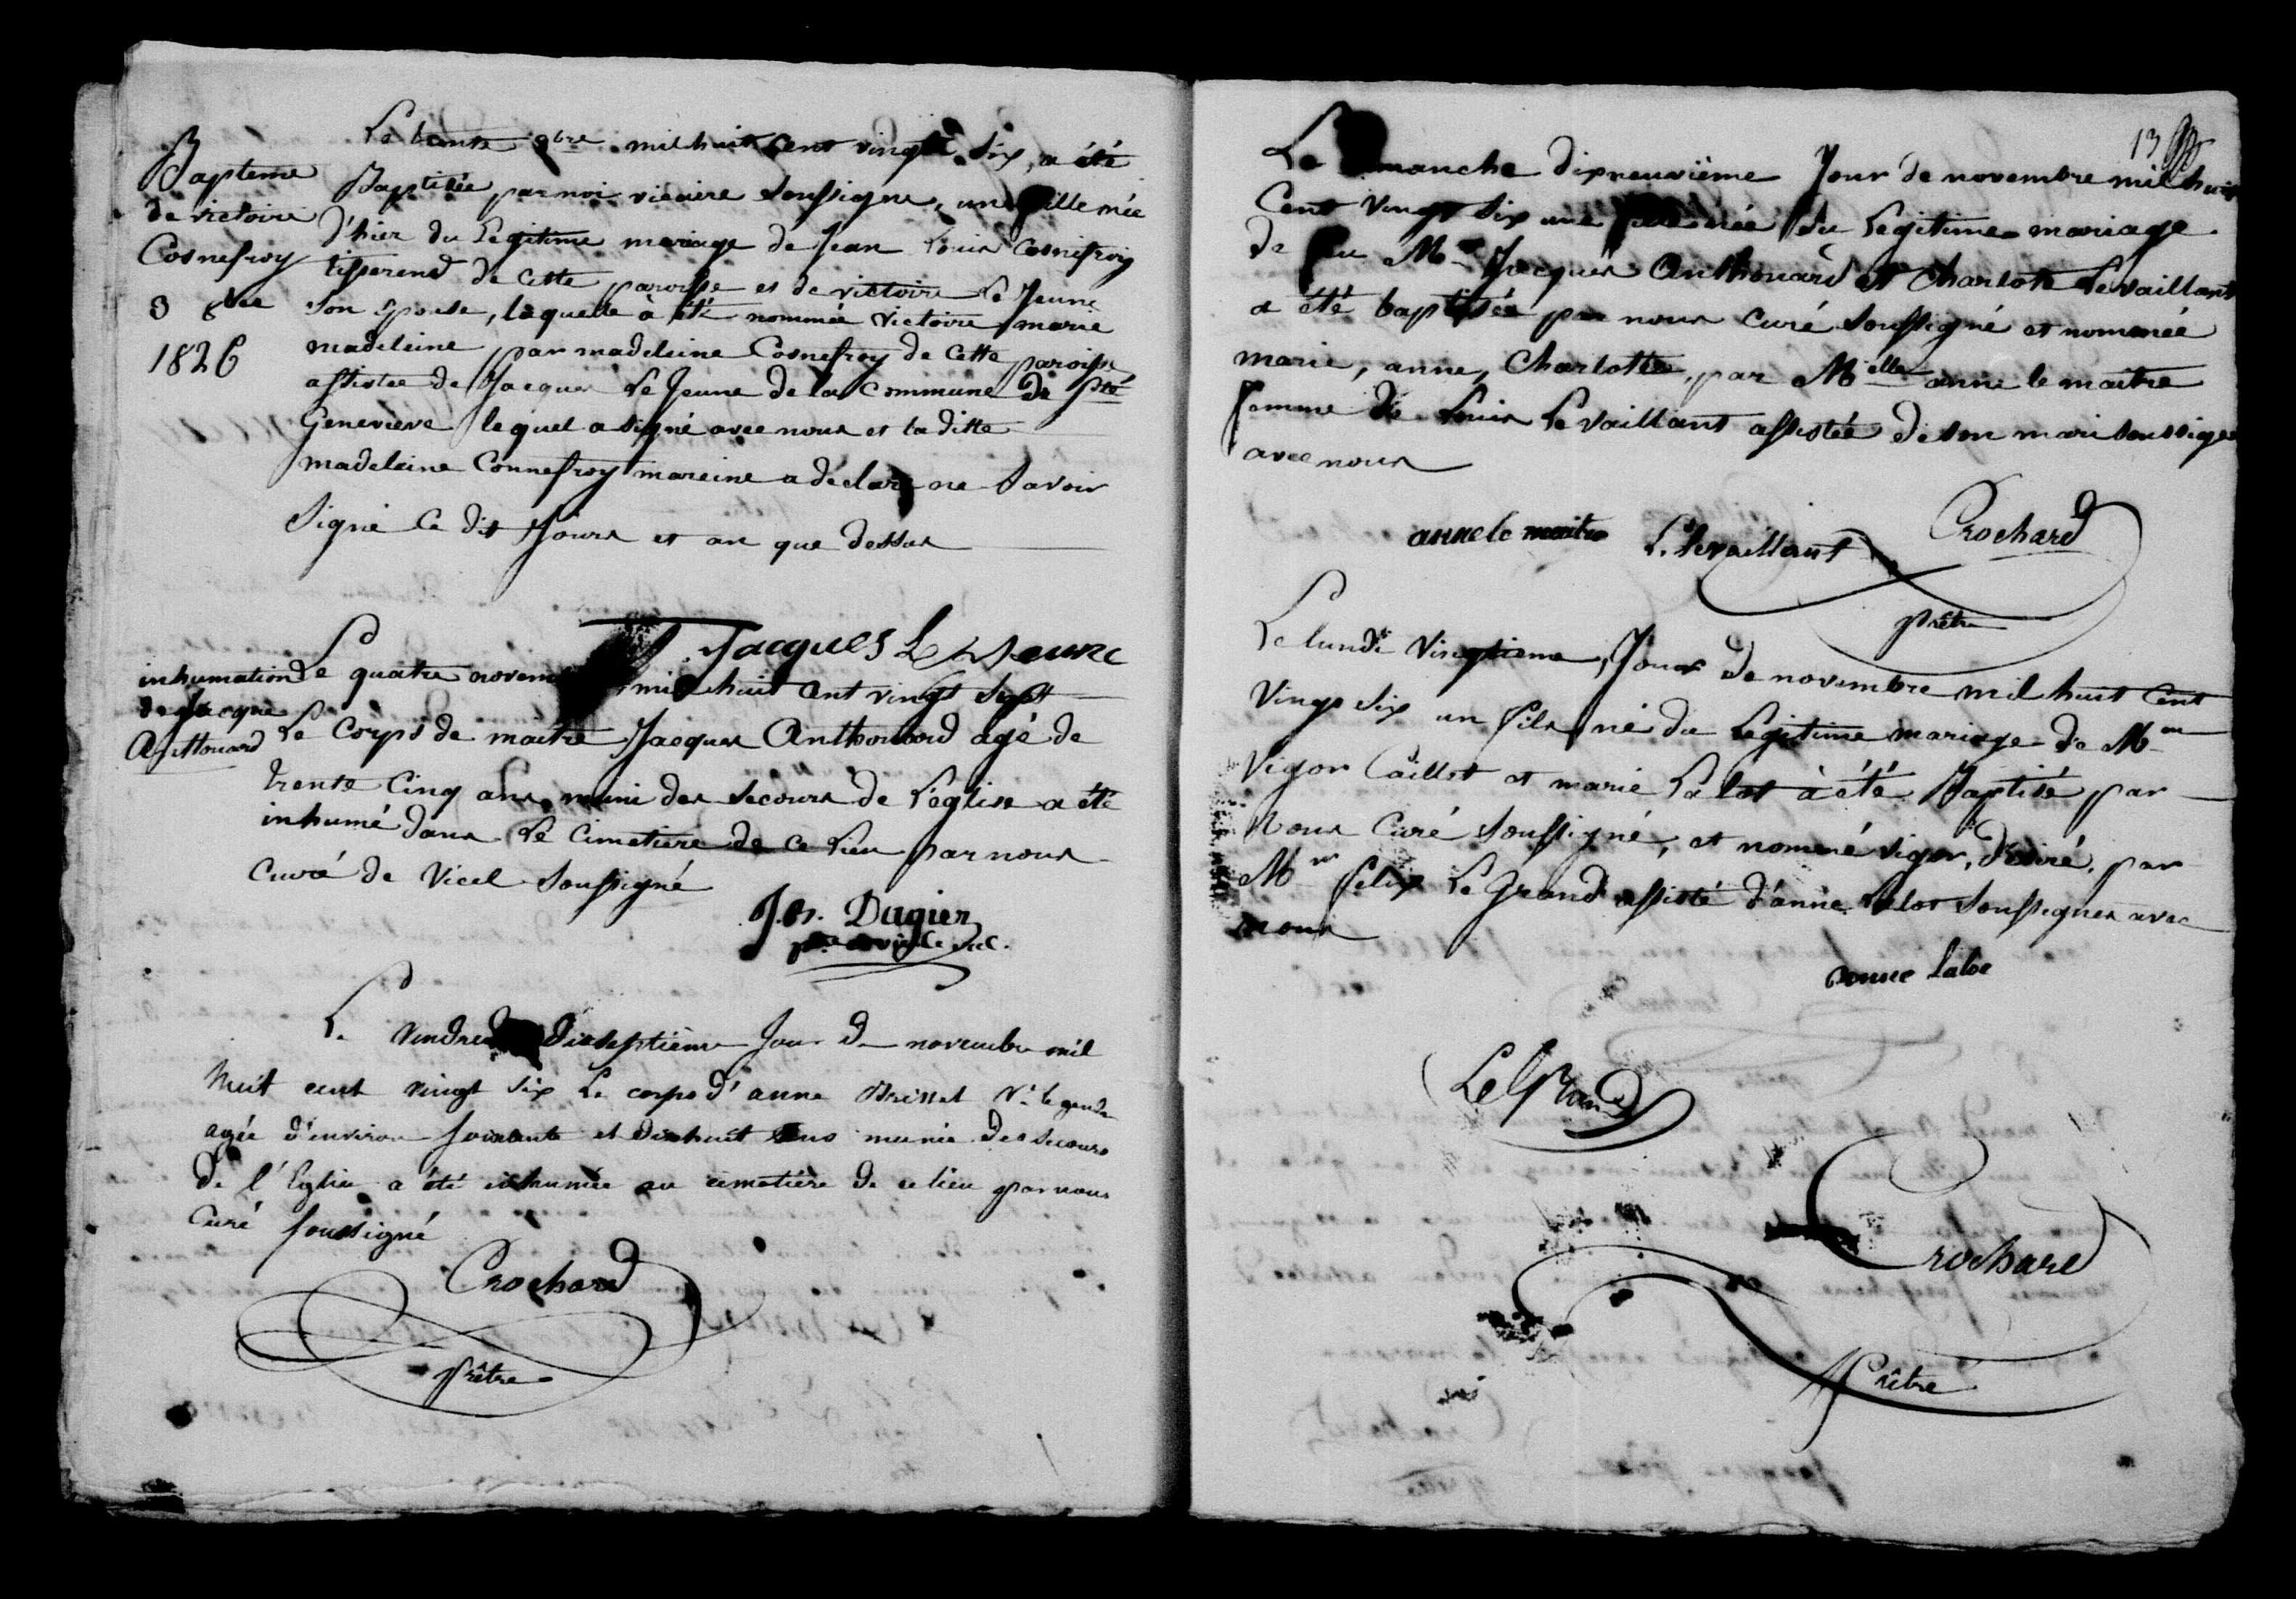 Bapteme
de victoire
Cosnefroy
1826
Le trente 9bre mil huit cent vingt six, a été
Baptisée par moi vicaire soussigné, une fille née
d'hier du Legitime mariage de Jean Louis Cosnefroy
tisserend de cette paroisse et de victoire Le Jeune
son épouse, laquelle à été nommée victoire marie
madeleine par madeleine Cosnefroy de cette paroisse
assistée de Jacques Le Jeune de la commune de Ste
Geneviève lequel a signé avec nous et la ditte
madeleine Connefroy mareine a déclaré ne Savoir
Signé ce dit Jours et an que dessus
Jacques Le Jeune
inhumation
de Jacque
Anthouard
Le quatre novem mil huit cent vingt sept
Le corps de maitre Jacques Anthouard agé de
trente cinq ans, muni des secours de L'église a été
inhumé dans le cimetiere de ce lieu par nous
Curé de Vicel soussigné
Dugier
Le vendredi dixseptième Jour de novembre mil
huit cent vingt six Le corps d'anne Brisset Ve le gendre
agée d'environ soixante et dixhuit ans munie des secours
de l'Eglise a été inhumée au cimetière de ce lieu par nous
Curé soussigné
Crochard
prêtre
13
Le manche dixneuvième Jour de novembre mil huit
Cent vingt six une fille née du Legitime mariage
de feu Me Jacques Anthouard et Charlote Levaillant
a été baptisée par nous curé soussigné et nommée
marie, anne, Charlotte, par Mielle anne le maitre
femme de Louis Levaillant assistée de son mari soussignés
avec nous
anne le maitre L. levaillant Crochard
prêtre
Le lundi vingtieme Jour de novembre mil huit Cent
Vingt six un fils né du Legitime mariage de M
Vigor Caillet et marie Lalot à été Baptisé par
Nous Curé soussigné, et nommé vigor, désiré, par
Mr felix Le Grand assisté d'anne Lalot soussignés avec
nous
anne laloe
LeGrand
Crochard
Prêtre